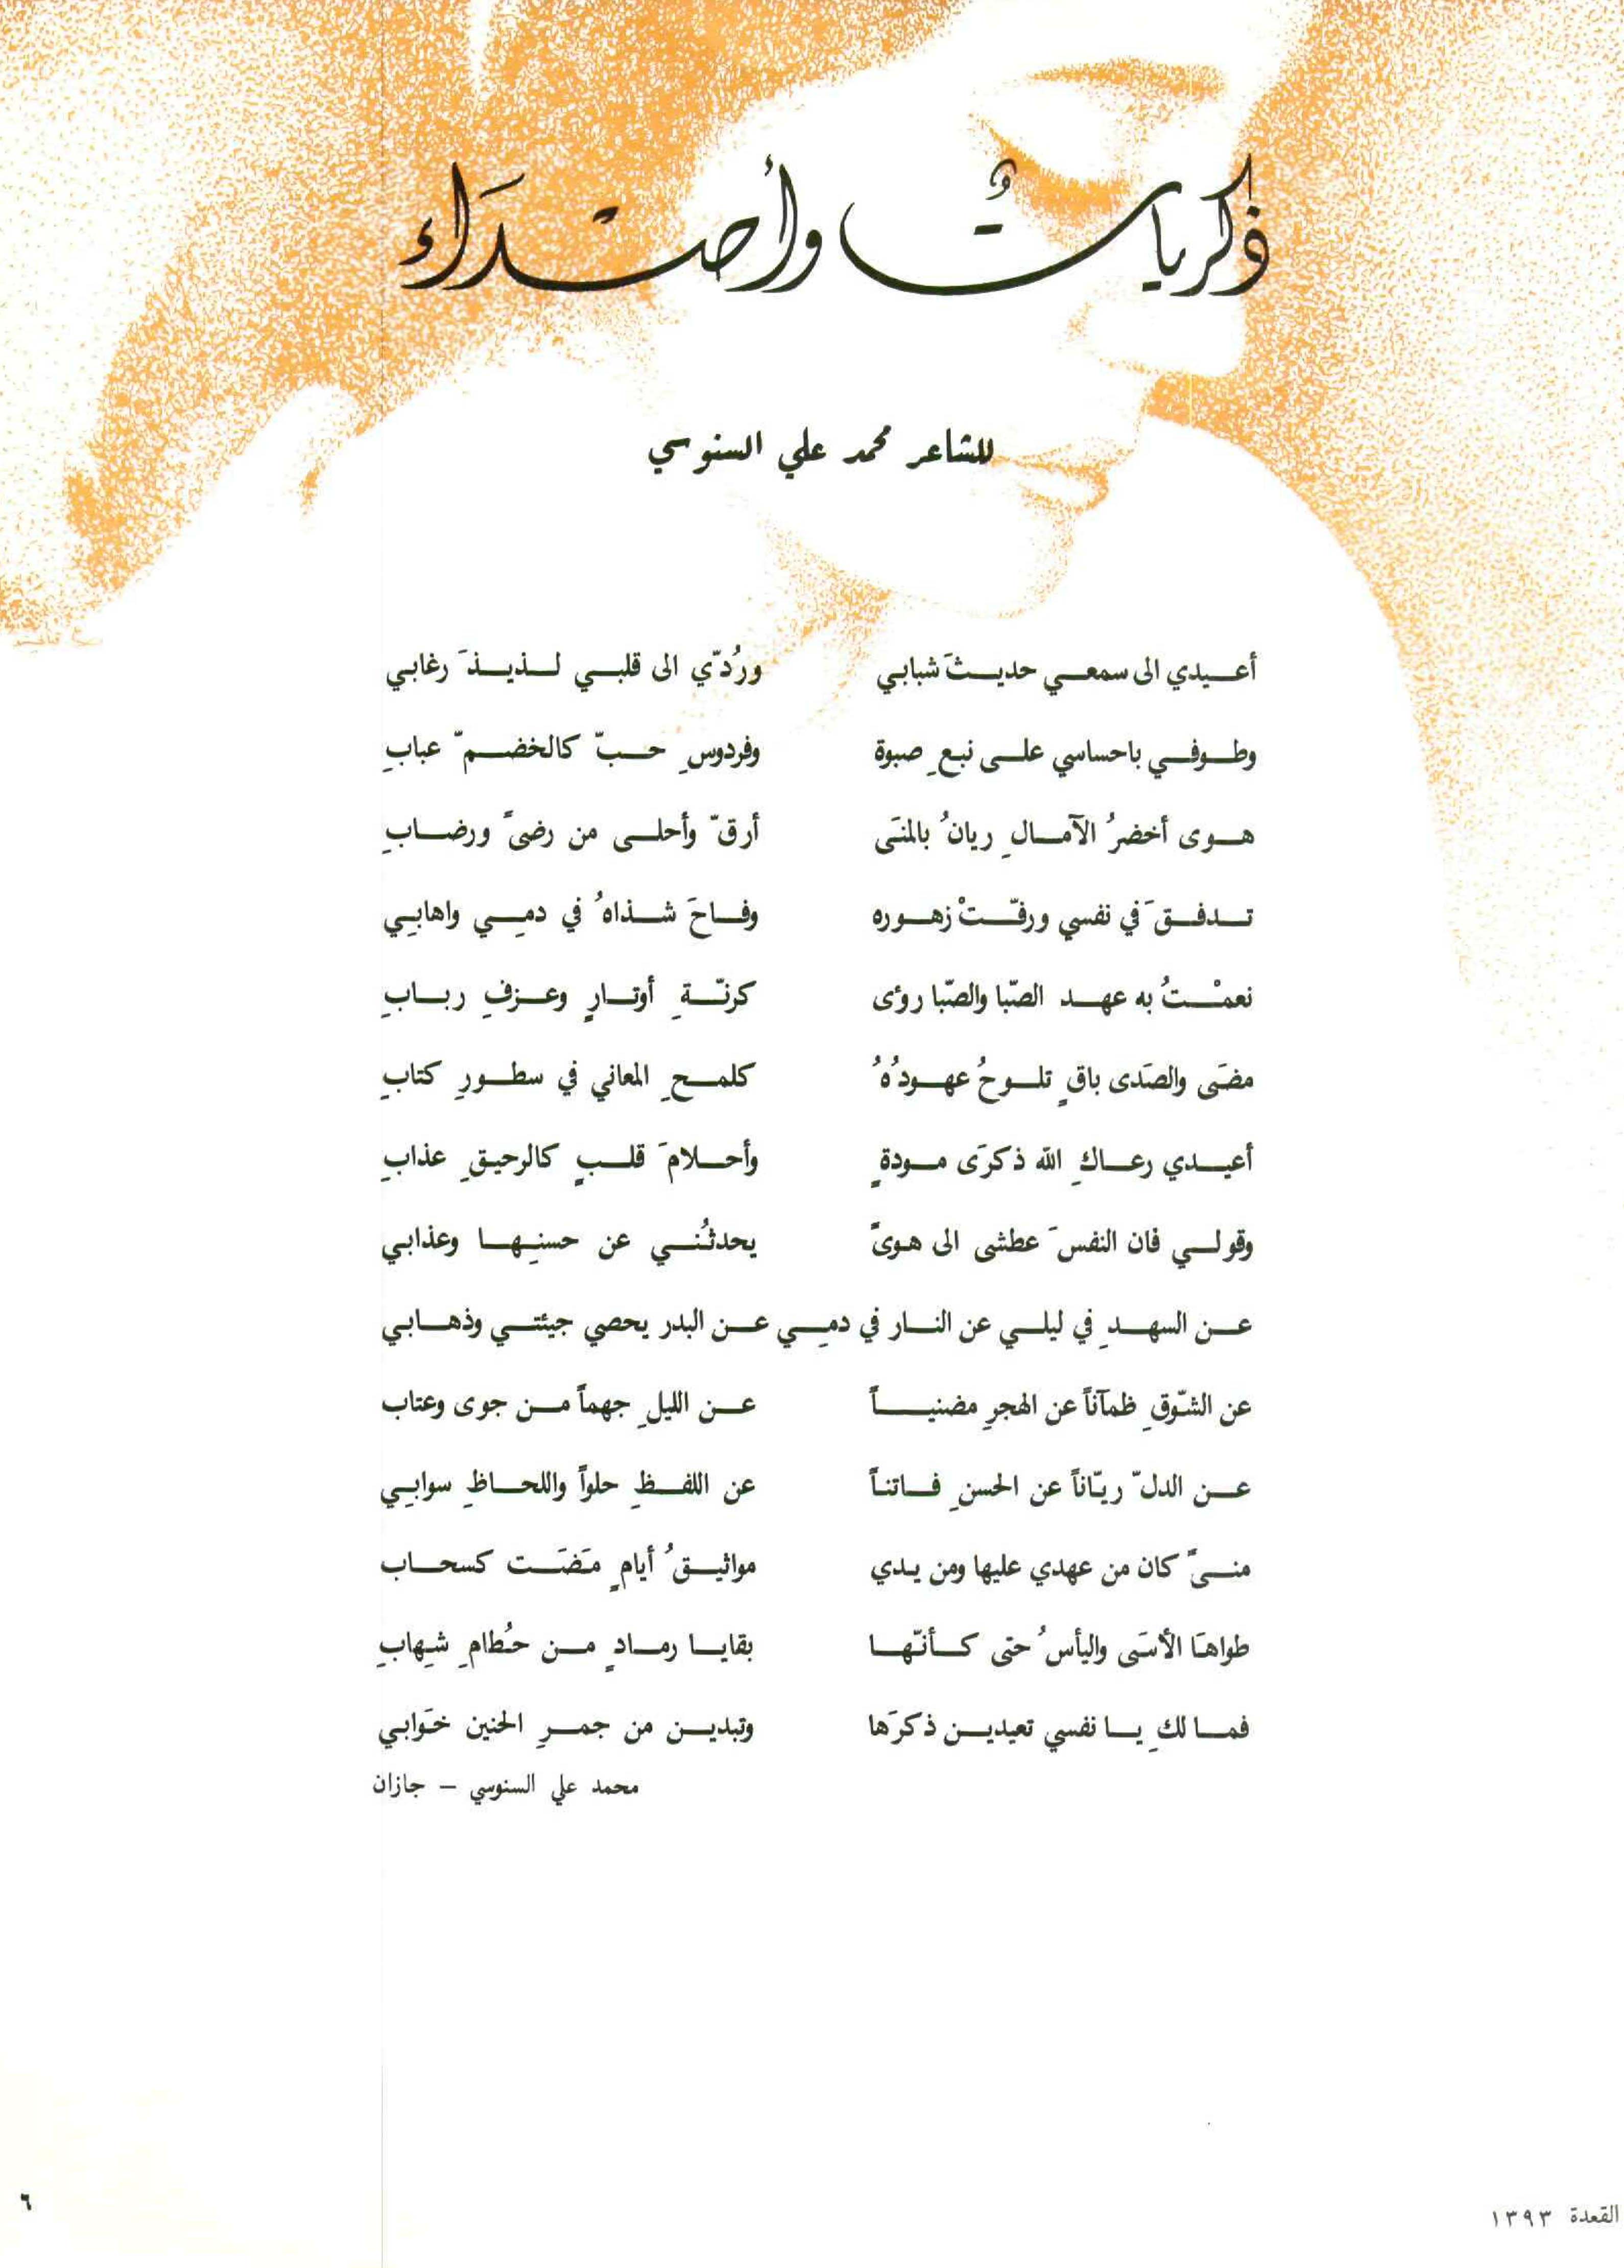 ذكرياتٌ وأصْدَاء
للشاعر محمد علي السنوسي
أعيدي الى سمعي حديثَ شبابي ورُدّي الى قلبي لذيذَ رغابي
وطوفي باحساسي على نبعِ صبوة وفردوسِ حبّ كالخضمّ عبابِ
هوى أخضرُ الآمالِ ريانُ بالمنَى أرقّ وأحلى من رضىً ورضابِ
تدفقَ في نفسي ورفّتْ زهوره وفاحَ شذاهُ في دمِي واهابِي
نعمْتُ به عهد الصّبا والصّبا روٴى كرنّةِ أوتارٍ وعزفِ ربابِ
مضَى والصَدى باقٍ تلوحُ عهودُهُ كلمحِ المعاني في سطورِ كتابِ
أعيدي رعاكِ الله ذكرَى مودةٍ وأحلامَ قلبٍ كالرحيقِ عذابِ
وقولي فان النفسَ عطشى الى هوىً يحدثُني عن حسنِها وعذابي
عن السهدِ في ليلي عن النار في دمِي عن البدر يحصي جيئتي وذهابي
عن الشّوقِ ظمآناً عن الهجرِ مضنياً عن الليلِ جهماً من جوى وعتاب
عن الدلّ ريّاناً عن الحسنِ فاتناً عن اللفظِ حلواً واللحاظِ سوابِي
منىً كان من عهدي عليها ومن يدي مواثيقُ أيامٍ مَضَت كسحاب
طواهَا الأسَى واليأسُ حتى كأنّها بقايا رمادٍ من حُطامِ شِهابِ
فما لكِ يا نفسي تعيدين ذكرَها وتبدين من جمرِ الحنين خَوابي
محمد علي السنوسي – جازان
القعدة ١٣٩٣
٦